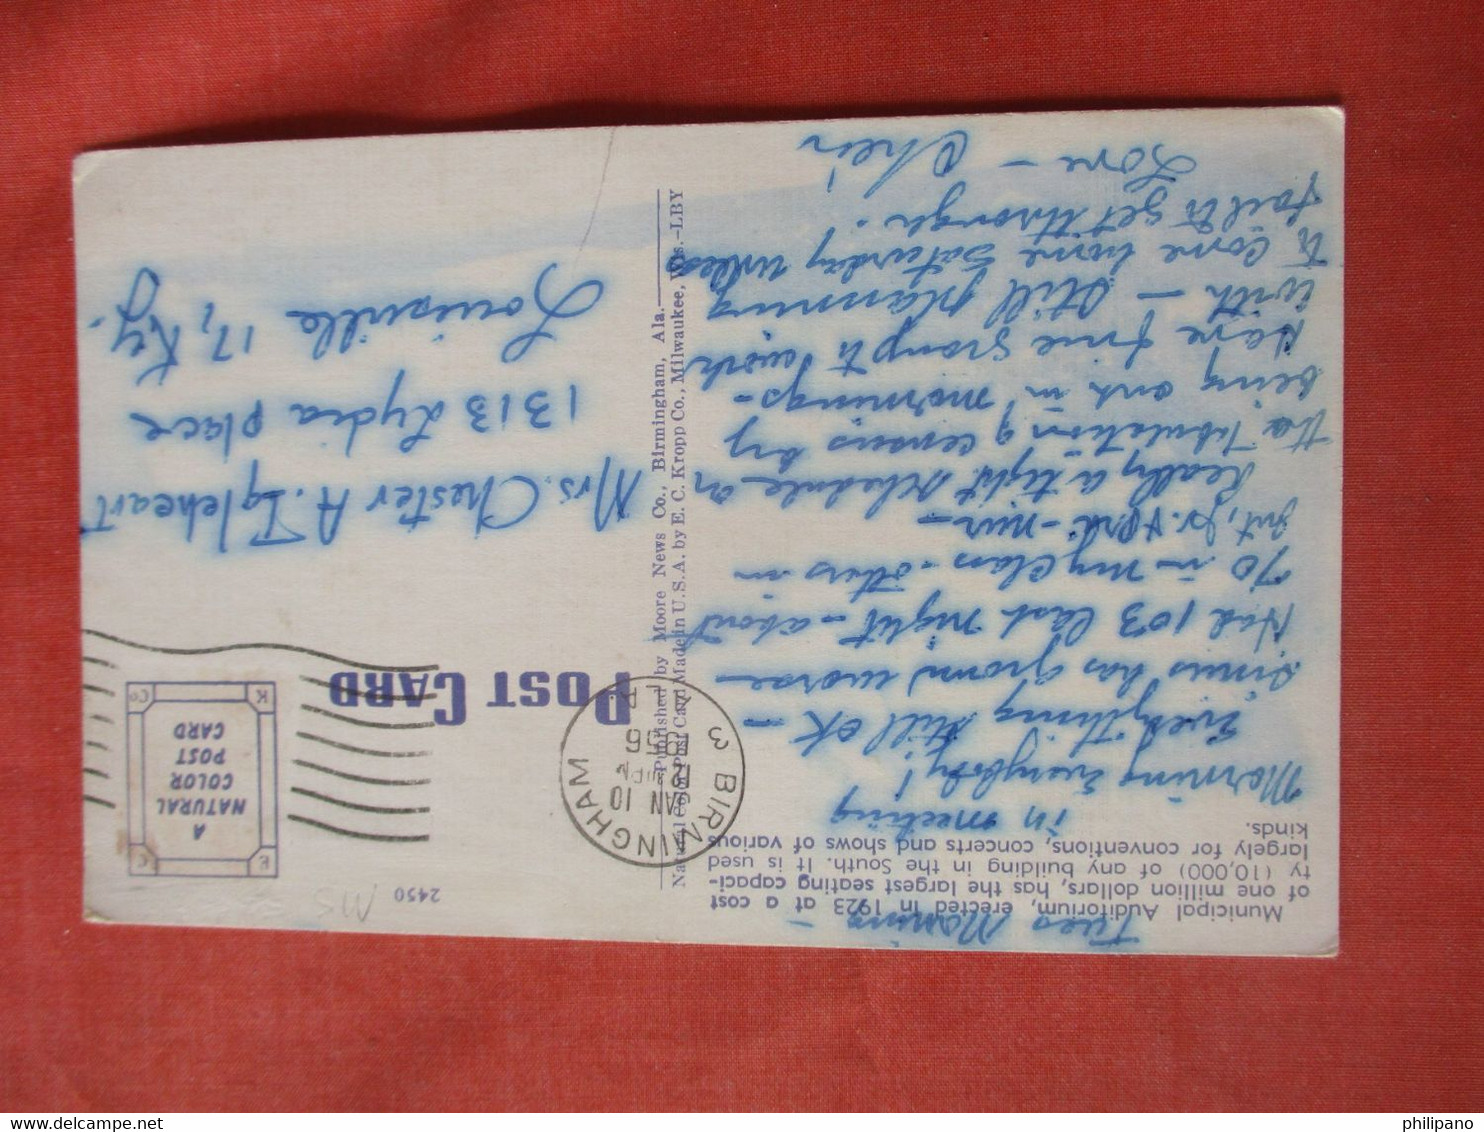 Tues Morning -
Municipal Auditorium, erected in 1923 at a cost
of one million dollars, has the largest seating capaci-
ty (10,000) of any building in the South. It is used
largely for conventions, concerts and shows of various
kinds.
in meeting
Morning Everybody!
Everything still OK -
Sinus has grown worse -
Had 103 last night - about
70 in my class - others in
Int, Jr. & Pri. - nur -
Really a tight schedule on
the tabulation of census by
being out in mornings -
Have fine group to work
with - Still planning
to come home Saturday unless
fail to get through.
Love - Chet
Published by Moore News Co., Birmingham, Ala.
Natural Color Post Card Made in U.S.A. by E. C. Kropp Co., Milwaukee, Wis.-LBY
2450
MS
POST CARD
BIRMINGHAM
3
ALA
JAN 10
12
PM
1956
K
E
C
Co
A
NATURAL
COLOR
POST
CARD
Mrs. Chester A. Igleheart
1313 Lydia Place
Louisville 17, Ky.
philipano